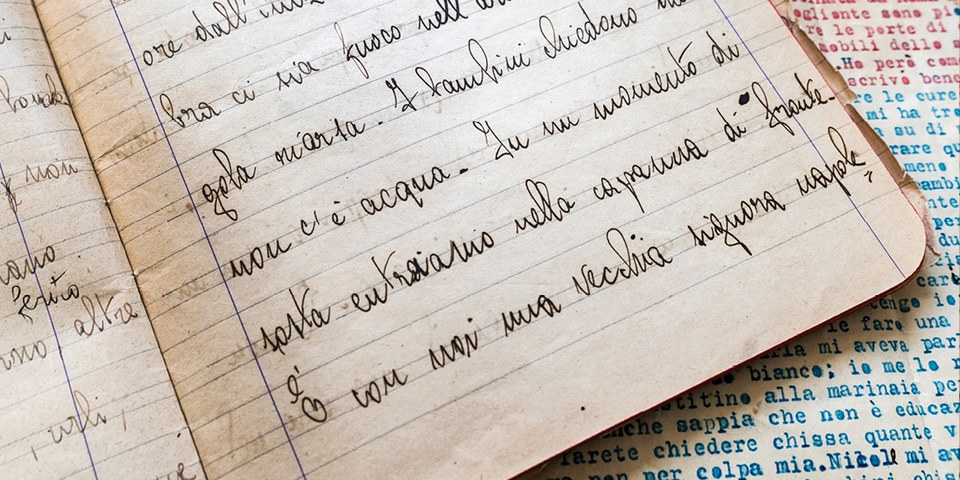 non
ferito
altre
urli,
ore dall'
bra ci sia fuoco nell'
gola riarsa. I bambini chiedono ma
non c'è acqua. In un momento di
sosta entriamo nella capanna di fronte.
È con noi una vecchia signora naple=
ogliente sono pi
re le porte di
mobili dello s
.Ho però com
scrivo bene
re le cure
mi ha tro
a su di
rare qu
meno
ambi
nte
per
du
care
tengo io
le fare una
rla mi aveva parl
bianco; io me lo r
stitino alla marinaia pe
nche sappia che non è educaz
farete chiedere chissa quante v
non per colpa mia.Nicoll mi av